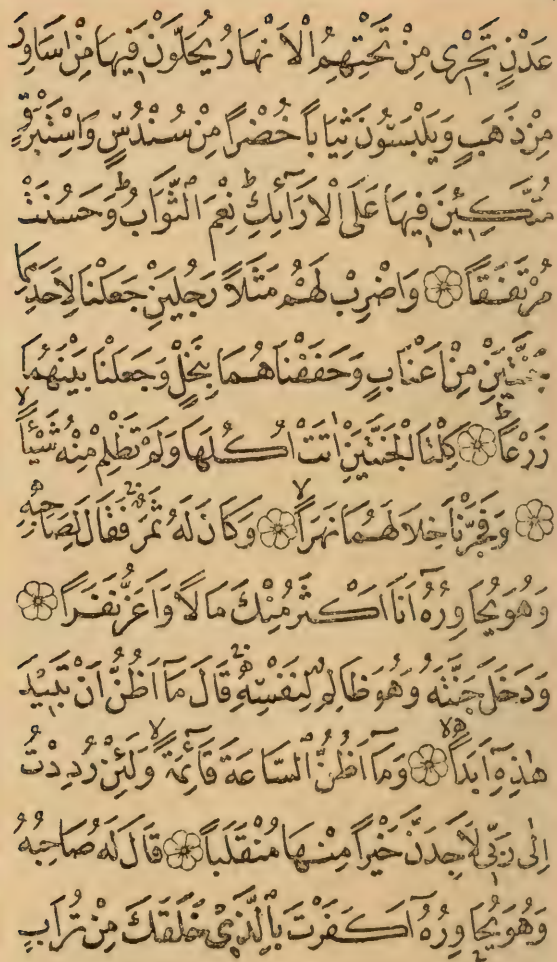 عَدْنٍ تَجْرِى مِنْ تَحْتِهِمُ الْاَنْهَارُ يُحَلَّوْنَ فِيهَا مِنْ اَسَاوِرَ
مِنْ ذَهَبٍ وَيَلْبَسُونَ ثِيَابًا خُضْرًا مِنْ سُنْدُسٍ وَاِسْتَبْرَقٍ
مُتَّكِئِينَ فِيهَا عَلَى الْاَرَآئِكِ ط نِعْمَ الثَّوَابُ ط وَحَسُنَتْ
مُرْتَفَقًا ۝ وَاضْرِبْ لَهُمْ مَثَلًا رَجُلَيْنِ جَعَلْنَا لِاَحَدِهِمَا
جَنَّتَيْنِ مِنْ اَعْنَابٍ وَحَفَفْنَاهُمَا بِنَخْلٍ وَجَعَلْنَا بَيْنَهُمَا
زَرْعًا ط ۝ كِلْتَا الْجَنَّتَيْنِ اٰتَتْ اُكُلَهَا وَلَمْ تَظْلِمْ مِنْهُ شَيْئًا لا
۝ وَفَجَّرْنَا خِلَالَهُمَا نَهَرًا لا ۝ وَكَانَ لَهُ ثَمَرٌ فَقَالَ لِصَاحِبِهِ
وَهُوَ يُحَاوِرُهُٓ اَنَا۬ اَكْثَرُ مِنْكَ مَالًا وَاَعَزُّ نَفَرًا ۝
وَدَخَلَ جَنَّتَهُ وَهُوَ ظَالِمٌ لِنَفْسِهِ قَالَ مَٓا اَظُنُّ اَنْ تَبِيدَ
هٰذِهِٓ اَبَدًا لا ۝ وَمَٓا اَظُنُّ السَّاعَةَ قَٓائِمَةً لا وَلَئِنْ رُدِدْتُ
اِلٰى رَبِّى لَاَجِدَنَّ خَيْرًا مِنْهَا مُنْقَلَبًا ۝ قَالَ لَهُ صَاحِبُهُ
وَهُوَ يُحَاوِرُهُٓ اَكَفَرْتَ بِالَّذِى خَلَقَكَ مِنْ تُرَابٍ